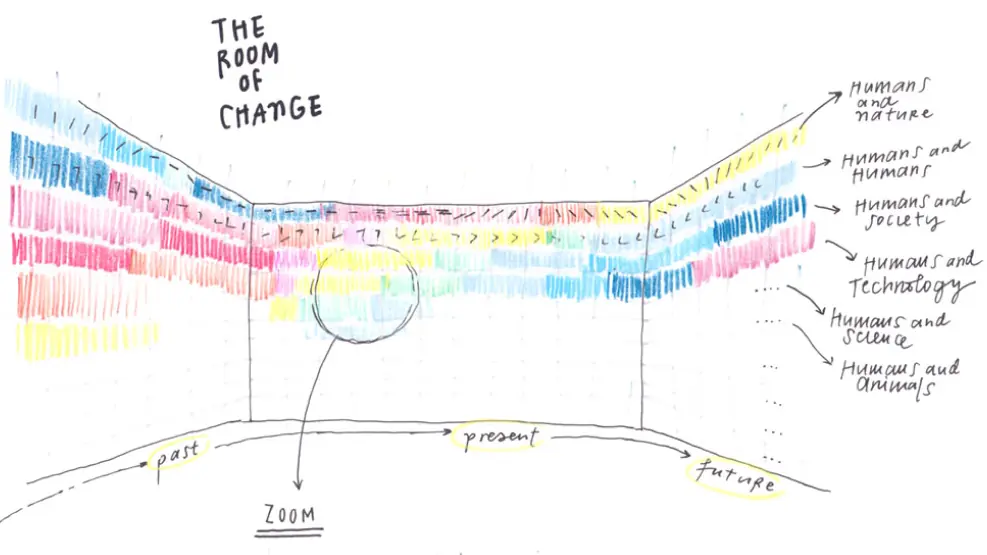 THE
ROOM
OF
CHANGE
Humans
and
nature
Humans and
Humans
Humans and
society
Humans and
Technology
Humans and
science
Humans and
animals
past
present
future
ZOOM